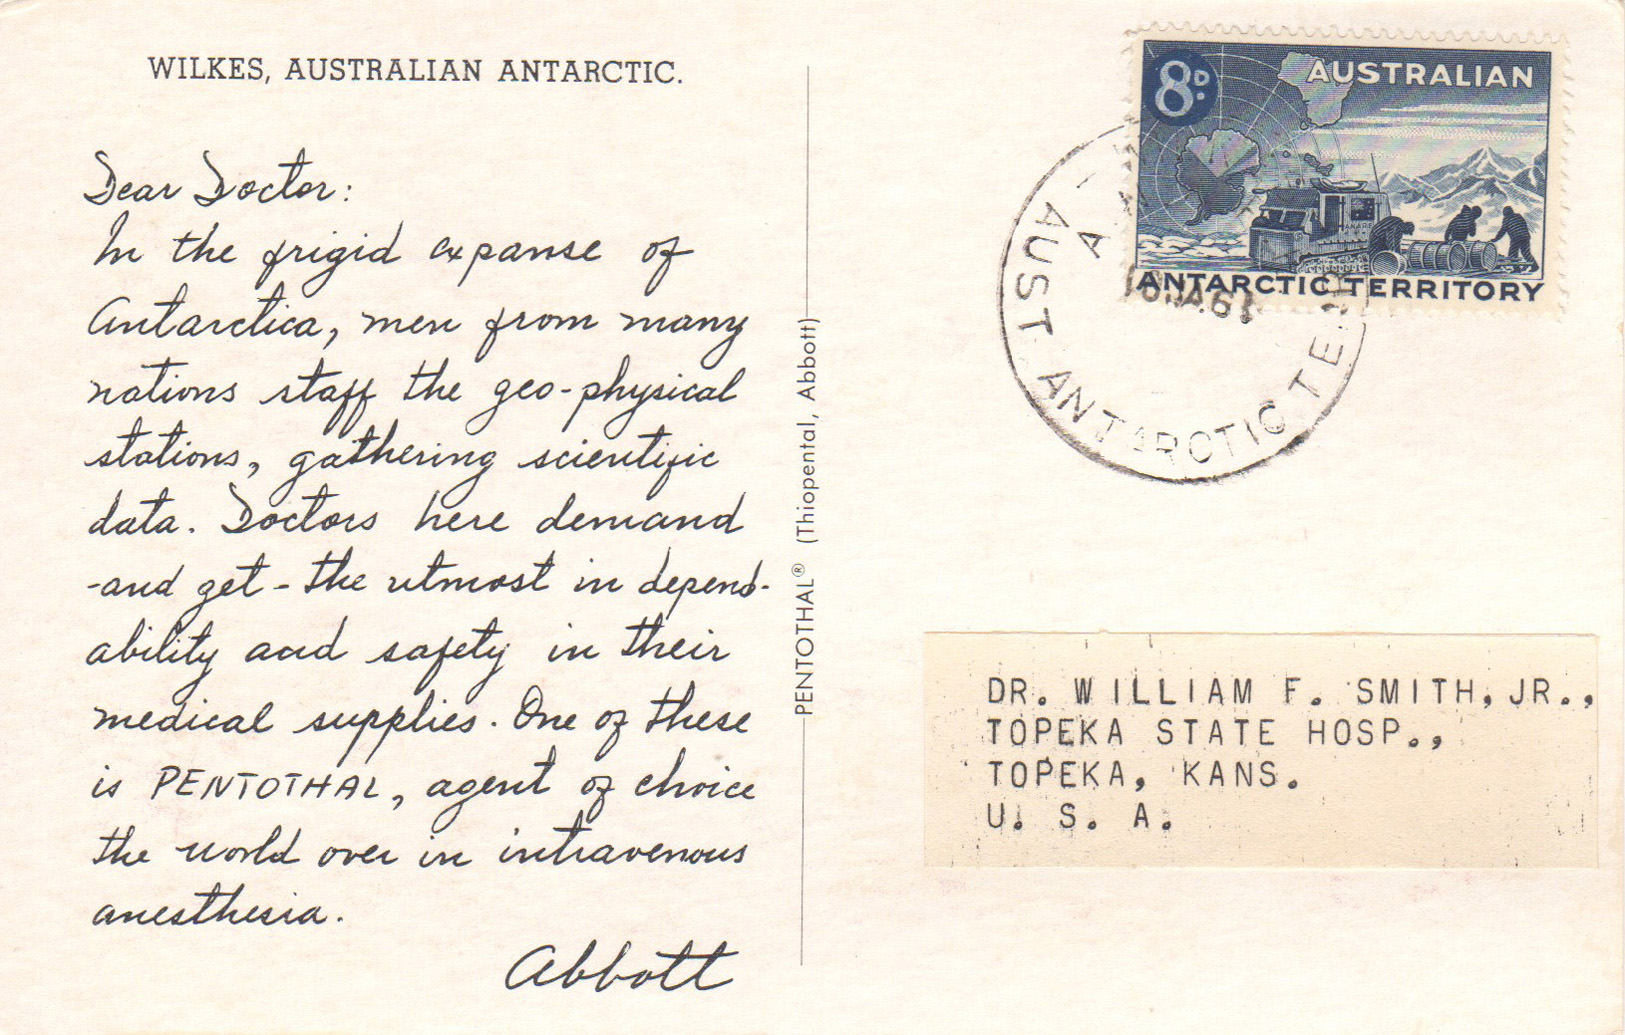 WILKES, AUSTRALIAN ANTARCTIC.
Dear Doctor:
In the frigid expanse of
Antarctica, men from many
nations staff the geo-physical
stations, gathering scientific
data. Doctors here demand
-and get- the utmost in depend-
ability and safety in their
medical supplies. One of these
is PENTOTHAL, agent of choice
the world over in intravenous
anesthesia.
Abbott
PENTOTHAL® (Thiopental, Abbott)
8D.
AUSTRALIAN
ANARE
ANTARCTIC TERRITORY
AUST ANTARCTIC TER
DR. WILLIAM F. SMITH, JR.,
TOPEKA STATE HOSP.,
TOPEKA, KANS.
U. S. A.